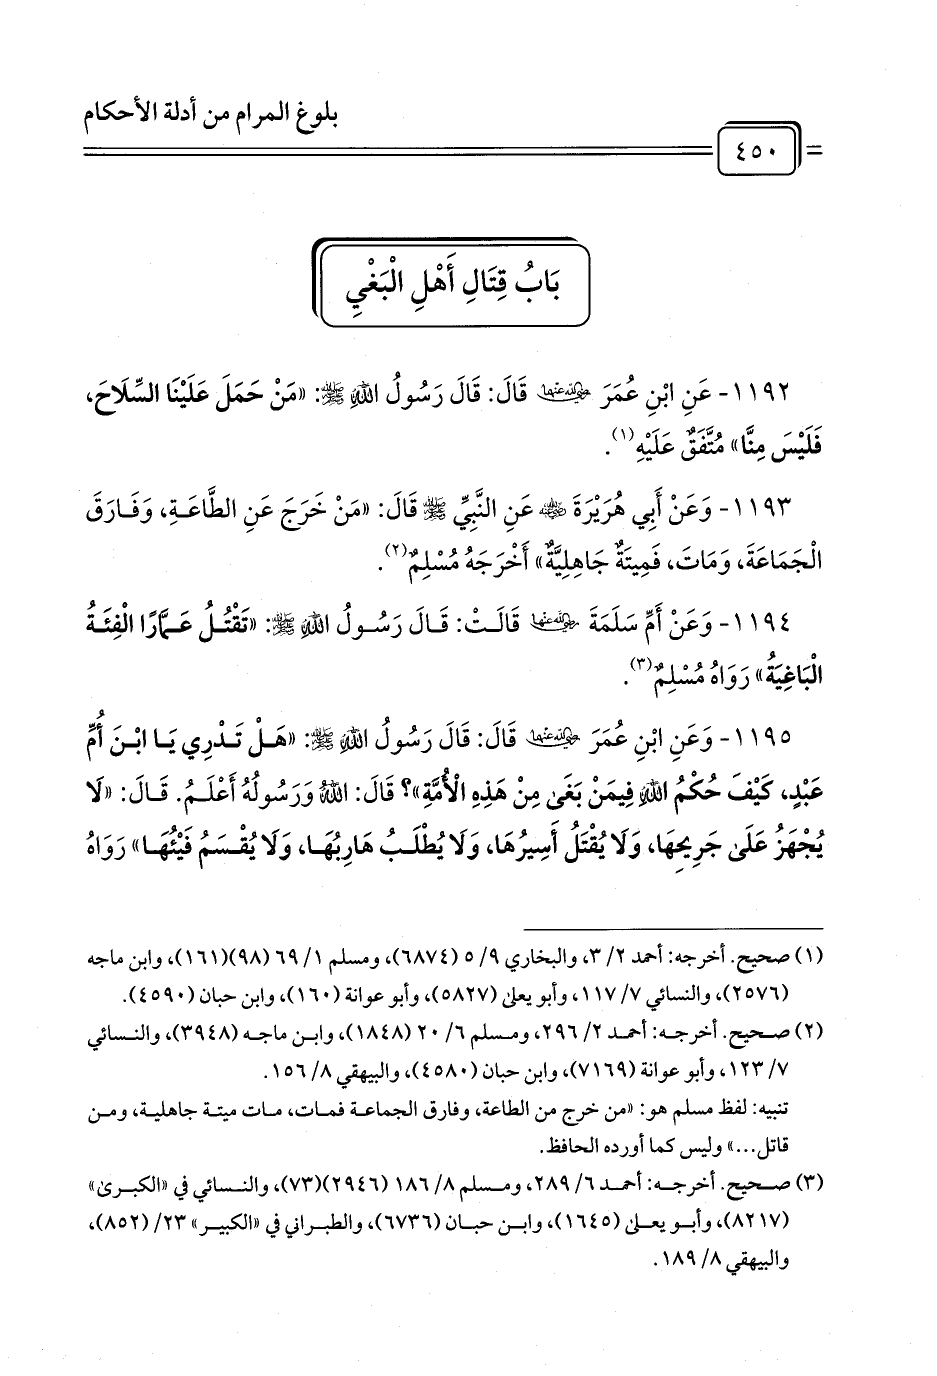 بلوغ المرام من أدلة الأحكام
٤٥٠
بَابُ قِتَالِ أَهْلِ الْبَغْيِ
١١٩٢- عَنِ ابْنِ عُمَرَ رضي الله عنهما قَالَ: قَالَ رَسُولُ اللهِ ﷺ: «مَنْ حَمَلَ عَلَيْنَا السِّلَاحَ،
فَلَيْسَ مِنَّا» مُتَّفَقٌ عَلَيْهِ(١).
١١٩٣- وَعَنْ أَبِي هُرَيْرَةَ رضي الله عنه عَنِ النَّبِيِّ ﷺ قَالَ: «مَنْ خَرَجَ عَنِ الطَّاعَةِ، وَفَارَقَ
الْجَمَاعَةَ، وَمَاتَ، فَمِيتَةٌ جَاهِلِيَّةٌ» أَخْرَجَهُ مُسْلِمٌ(٢).
١١٩٤- وَعَنْ أُمِّ سَلَمَةَ رضي الله عنها قَالَتْ: قَالَ رَسُولُ اللهِ ﷺ: «تَقْتُلُ عَمَّارًا الْفِئَةُ
الْبَاغِيَةُ» رَوَاهُ مُسْلِمٌ(٣).
١١٩٥- وَعَنِ ابْنِ عُمَرَ رضي الله عنهما قَالَ: قَالَ رَسُولُ اللهِ ﷺ: «هَلْ تَدْرِي يَا ابْنَ أُمِّ
عَبْدٍ، كَيْفَ حُكْمُ اللهِ فِيمَنْ بَغَى مِنْ هَذِهِ الْأُمَّةِ»؟ قَالَ: اللهُ وَرَسُولُهُ أَعْلَمُ. قَالَ: «لَا
يُجْهَزُ عَلَى جَرِيحِهَا، وَلَا يُقْتَلُ أَسِيرُهَا، وَلَا يُطْلَبُ هَارِبُهَا، وَلَا يُقْسَمُ فَيْئُهَا» رَوَاهُ
(١) صحيح. أخرجه: أحمد ٢/ ٣، والبخاري ٩/ ٥ (٦٨٧٤)، ومسلم ١/ ٦٩ (٩٨)(١٦١)، وابن ماجه
(٢٥٧٦)، والنسائي ٧/ ١١٧، وأبو يعلى (٥٨٢٧)، وأبو عوانة (١٦٠)، وابن حبان (٤٥٩٠).
(٢) صحيح. أخرجه: أحمد ٢/ ٢٩٦، ومسلم ٦/ ٢٠ (١٨٤٨)، وابن ماجه (٣٩٤٨)، والنسائي
٧/ ١٢٣، وأبو عوانة (٧١٦٩)، وابن حبان (٤٥٨٠)، والبيهقي ٨/ ١٥٦.
تنبيه: لفظ مسلم هو: «من خرج من الطاعة، وفارق الجماعة فمات، مات ميتة جاهلية، ومن
قاتل...» وليس كما أورده الحافظ.
(٣) صحيح. أخرجه: أحمد ٦/ ٢٨٩، ومسلم ٨/ ١٨٦ (٢٩٤٦)(٧٣)، والنسائي في «الكبرى»
(٨٢١٧)، وأبو يعلى (١٦٤٥)، وابن حبان (٦٧٣٦)، والطبراني في «الكبير» ٢٣/ (٨٥٢)،
والبيهقي ٨/ ١٨٩.